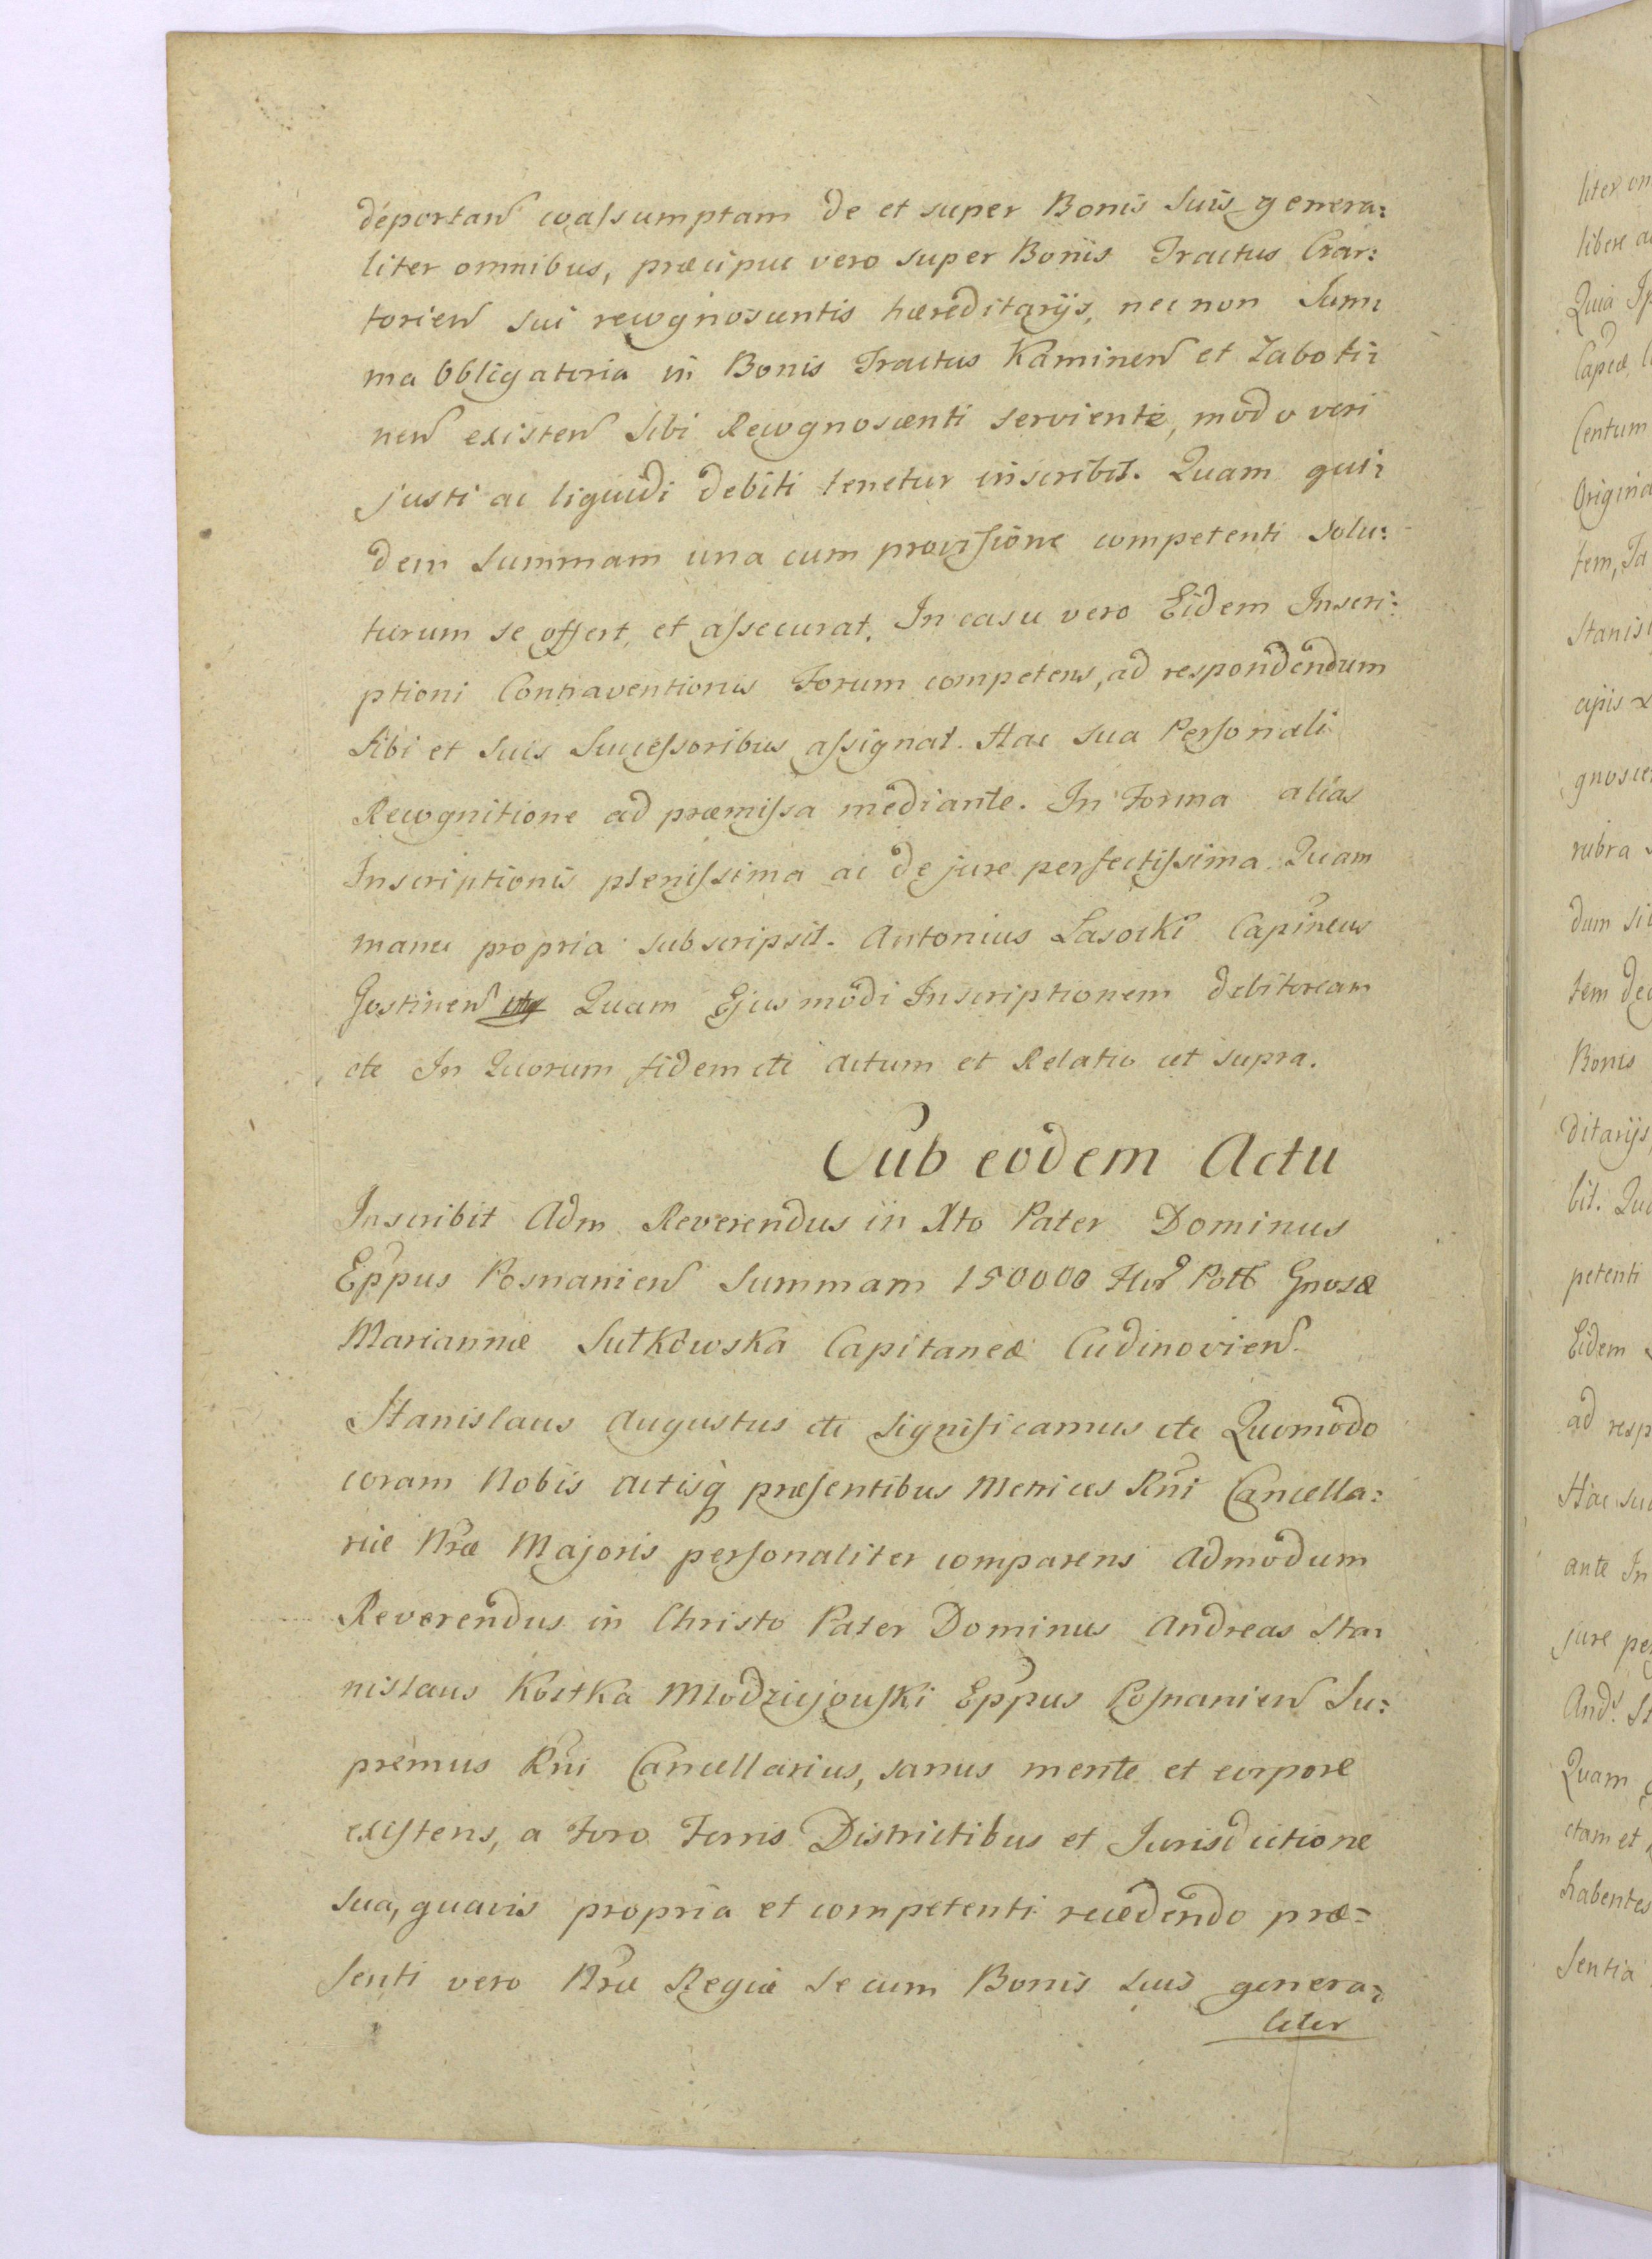 deportan coassumptam de et super Bonis Suis genera:
liter omnibus, præcipue vero super Bonis Tractus Czar:
torien sui recognoscentis hæreditarijs, nec non Sum:
ma Obligatoria in Bonis Tractus Kaminen et Zaboti:
nen existen Sibi Recognoscenti serviente, modo veri
justi ac liquidi debiti tenetur inscribit. Quam qui:
dem Summam una cum provisione competenti solu:
turum se offert, et assecurat. In casu vero Eidem Inscri:
ptioni Contraventionis Forum competens, ad respondendum
Sibi et Suis Successoribus assignat. Hac sua Personali
Recognitione ad præmissa mediante. In Forma alias
Inscriptionis plenissima ac de jure perfectissima. Quam
manu propria subscripsit. Antonius Lasocki Capineus
Gostinen Quam Ejusmodi Inscriptionem debitoream
etc In Quorum fidem etc Actum et Relatio ut supra.
Sub eodem Actu
Inscribit Adm Reverendus in Xto Pater Dominus
Eppus Posnanien Summam 150000 Flor Poll Gnosæ
Mariannæ Sułkowska Capitaneæ Cudinovien.
Stanislaus Augustus etc Significamus etc Quomodo
coram Nobis Actisq præsentibus Metrices Rni Cancella:
riæ Nræ Majoris personaliter comparens Admodum
Reverendus in Christo Pater Dominus Andreas Sta:
nislaus Kostka Młodziejouski Eppus Posnanien Su:
premus Rni Cancellarius, sanus mente et corpore
existens, a foro Terris Districtibus et Jurisdictione
sua, quavis propria et competenti recedendo præ=
senti vero Nræ Regiæ se cum Bonis suis genera:
liter